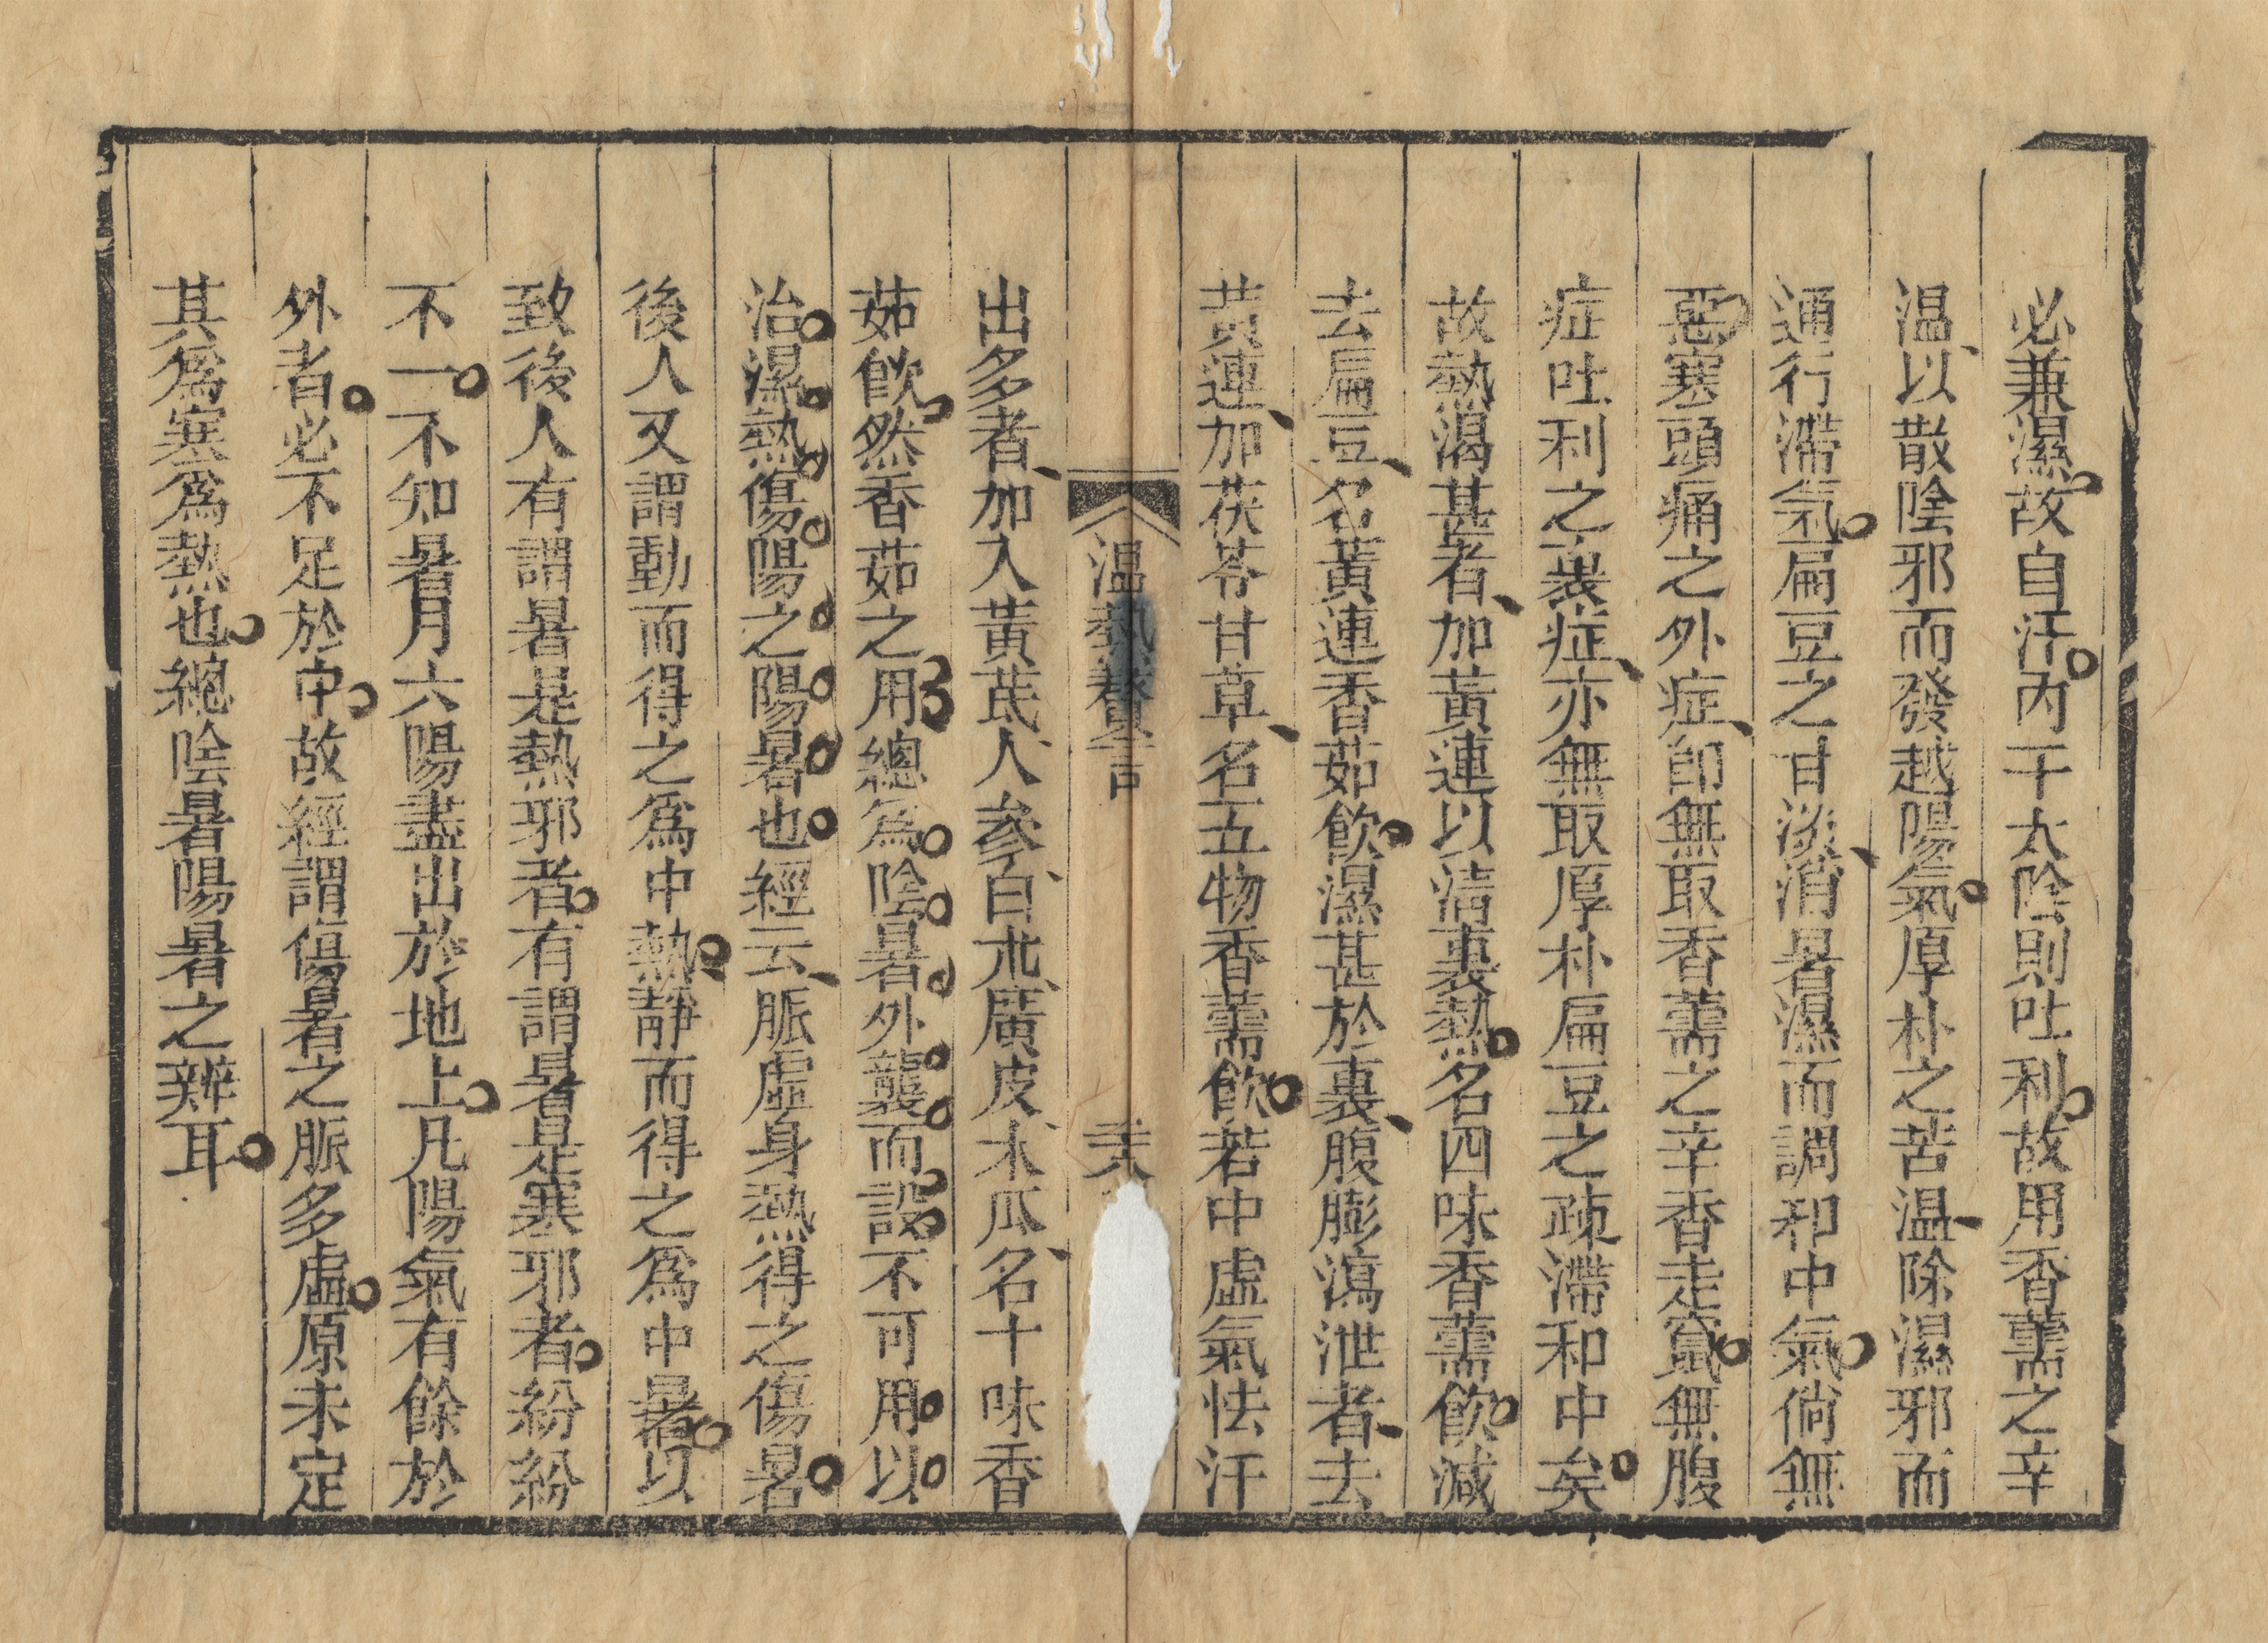 必兼濕故自汗內干太陰則吐利故用香薷之辛
温以散陰邪而發越陽氣厚朴之苦温除濕邪而
通行滯氣扁豆之甘淡消暑濕而調和中氣倘無
惡寒頭痛之外症即無取香薷之辛香走竄無腹
症吐利之裏症亦無取厚朴扁豆之疎滯和中矣
故熱渴甚者加黃連以清裏熱名四味香薷飲減
去扁豆名黃連香茹飲濕甚於裏腹膨瀉泄者去
黃連加茯苓甘草名五物香薷飲若中虛氣怯汗
温熱贅言
出多者加入黃芪人參白朮廣皮木瓜名十味香
茹飲然香茹之用總爲陰暑外襲而設不可用以
治濕熱傷陽之陽暑也經云脈虛身熱得之傷暑
後人又謂動而得之爲中熱靜而得之爲中暑以
致後人有謂暑是熱邪者有謂暑是寒邪者紛紛
不一不知暑月六陽盡出於地上凡陽氣有餘於
外者必不足於中故經謂傷暑之脈多虛原未定
其爲寒爲熱也總陰暑陽暑之辨耳